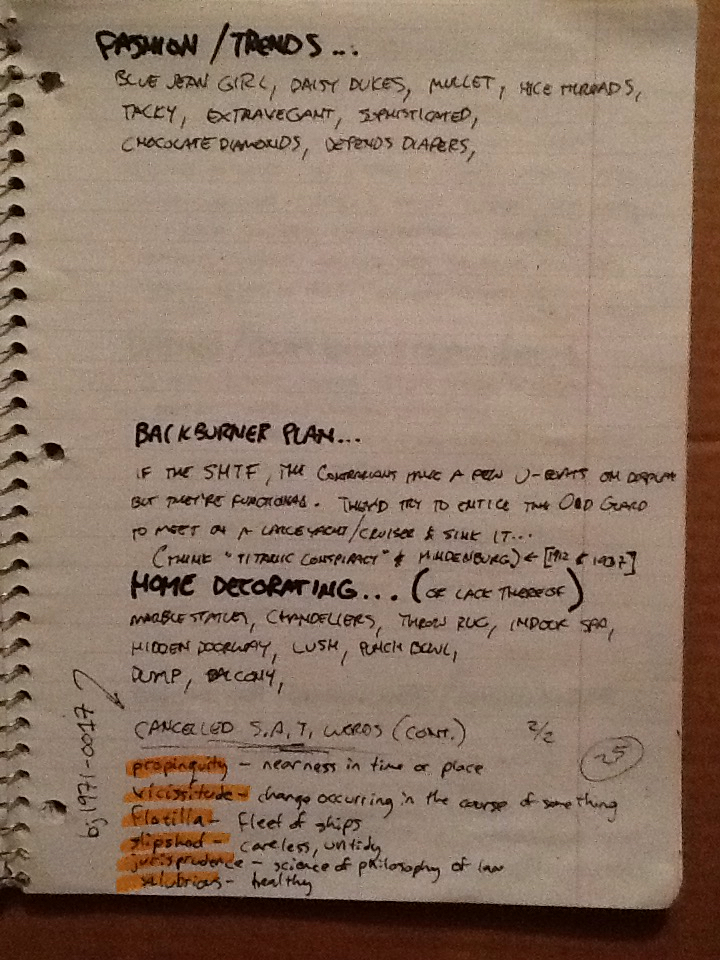 FASHION / TRENDS...
BLUE JEAN GIRL, DAISY DUKES, MULLET, NICE THREADS,
TACKY, EXTRAVEGANT, SOPHISTICATED,
CHOCOLATE DIAMONDS, DEPENDS DIAPERS,
BACKBURNER PLAN...
IF THE SHTF, THE CONTRARIANS HAVE A FEW U-BOATS ON DISPLAY
BUT THEY'RE FUNCTIONAL. THEY'D TRY TO ENTICE THE OLD GUARD
TO MEET ON A LARGE YACHT/CRUISER & SINK IT...
(THINK "TITANIC CONSPIRACY" & HINDENBURG) ← [1912 & 1937]
HOME DECORATING... (OR LACK THEREOF)
MARBLE STATUES, CHANDELIERS, THROW RUG, INDOOR SPA,
HIDDEN DOORWAY, LUSH, PUNCH BOWL,
DUMP, BALCONY,
CANCELLED S.A.T. WORDS (CONT.) 2/2
25
propinquity - nearness in time or place
vicissitude - change occurring in the course of something
flotilla - fleet of ships
slipshod - careless, untidy
jurisprudence - science of philosophy of law
salubrious - healthy
bj1971-0047